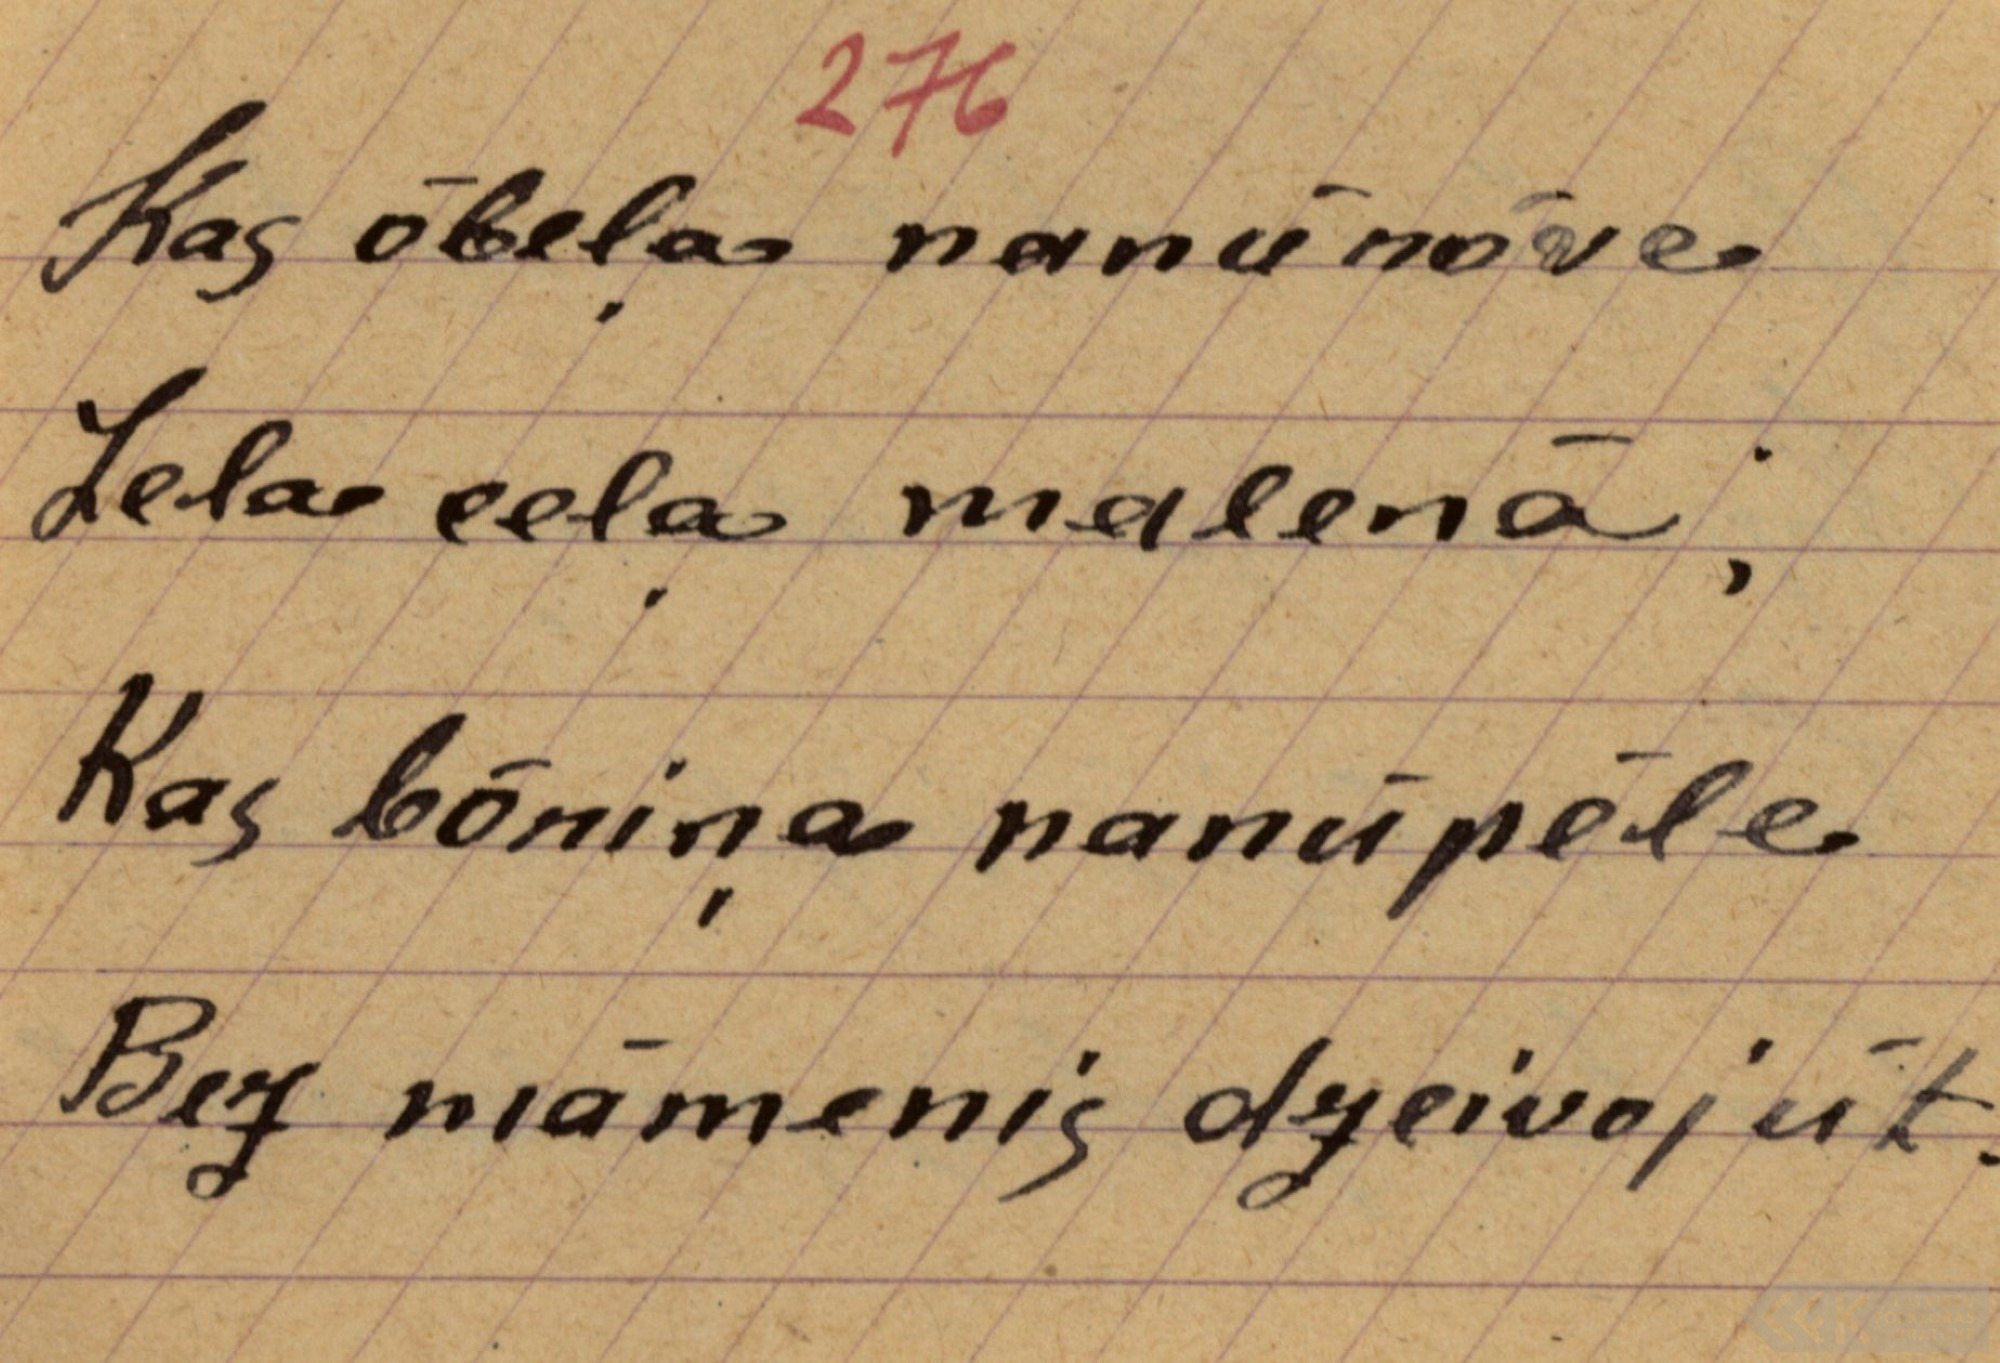 276
Kas ōbeļa nanūrōve
Lela ceļa malenā;
Kas bōriņa nanūpēle
Bez māmenis dzeivojūt.